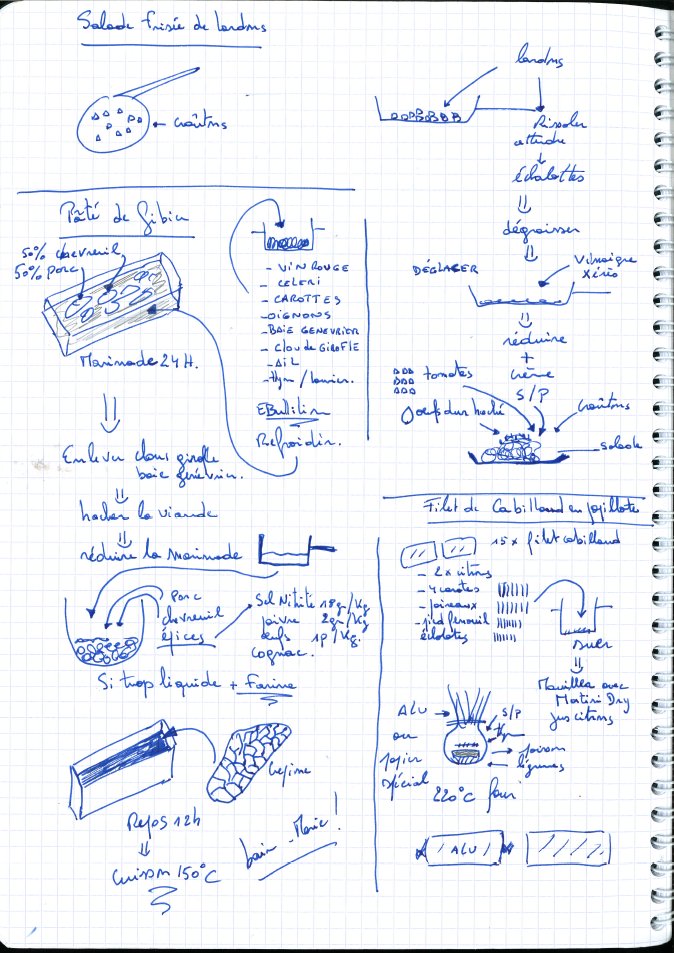 Salade frisée de lardons
croûtons
lardons
Rissoler
attendre
échalottes
dégraisser
DÉGLAGER
Vinaigre
xérès
réduire
+
crème
S/P
tomates
Oeufs dur haché
croûtons
salade
Pâté de Gibier
50% chevreuil
50% porc
Marinade 24 H.
- VIN ROUGE
- CELERI
- CAROTTES
- OIGNONS
- BAIE GENEVRIER
- Clou de GIROFLE
- AIL
- thym / laurier.
EBullition
Refroidir.
Enlever clous girofle
baie genévrier.
hacher la viande
réduire la marinade
porc
chevreuil
épices
Sel Nitrité 18gr/Kg
poivre 2gr/Kg
oeufs 1p/Kg.
cognac.
Si trop liquide + Farine
Crépine
Repos 12h
Cuisson 150°C
bain-Marie !
Filet de Cabillaud en papillote
15 x filet cabillaud
- 2 x citrons
- 4 carottes
- poireaux
- pied fenouil
échalotes
suer
Mouiller avec
Martini Dry
jus citrons
ALU
ou
papier
spécial
S/P
Thym
poisson
légumes
220°C four
ALU